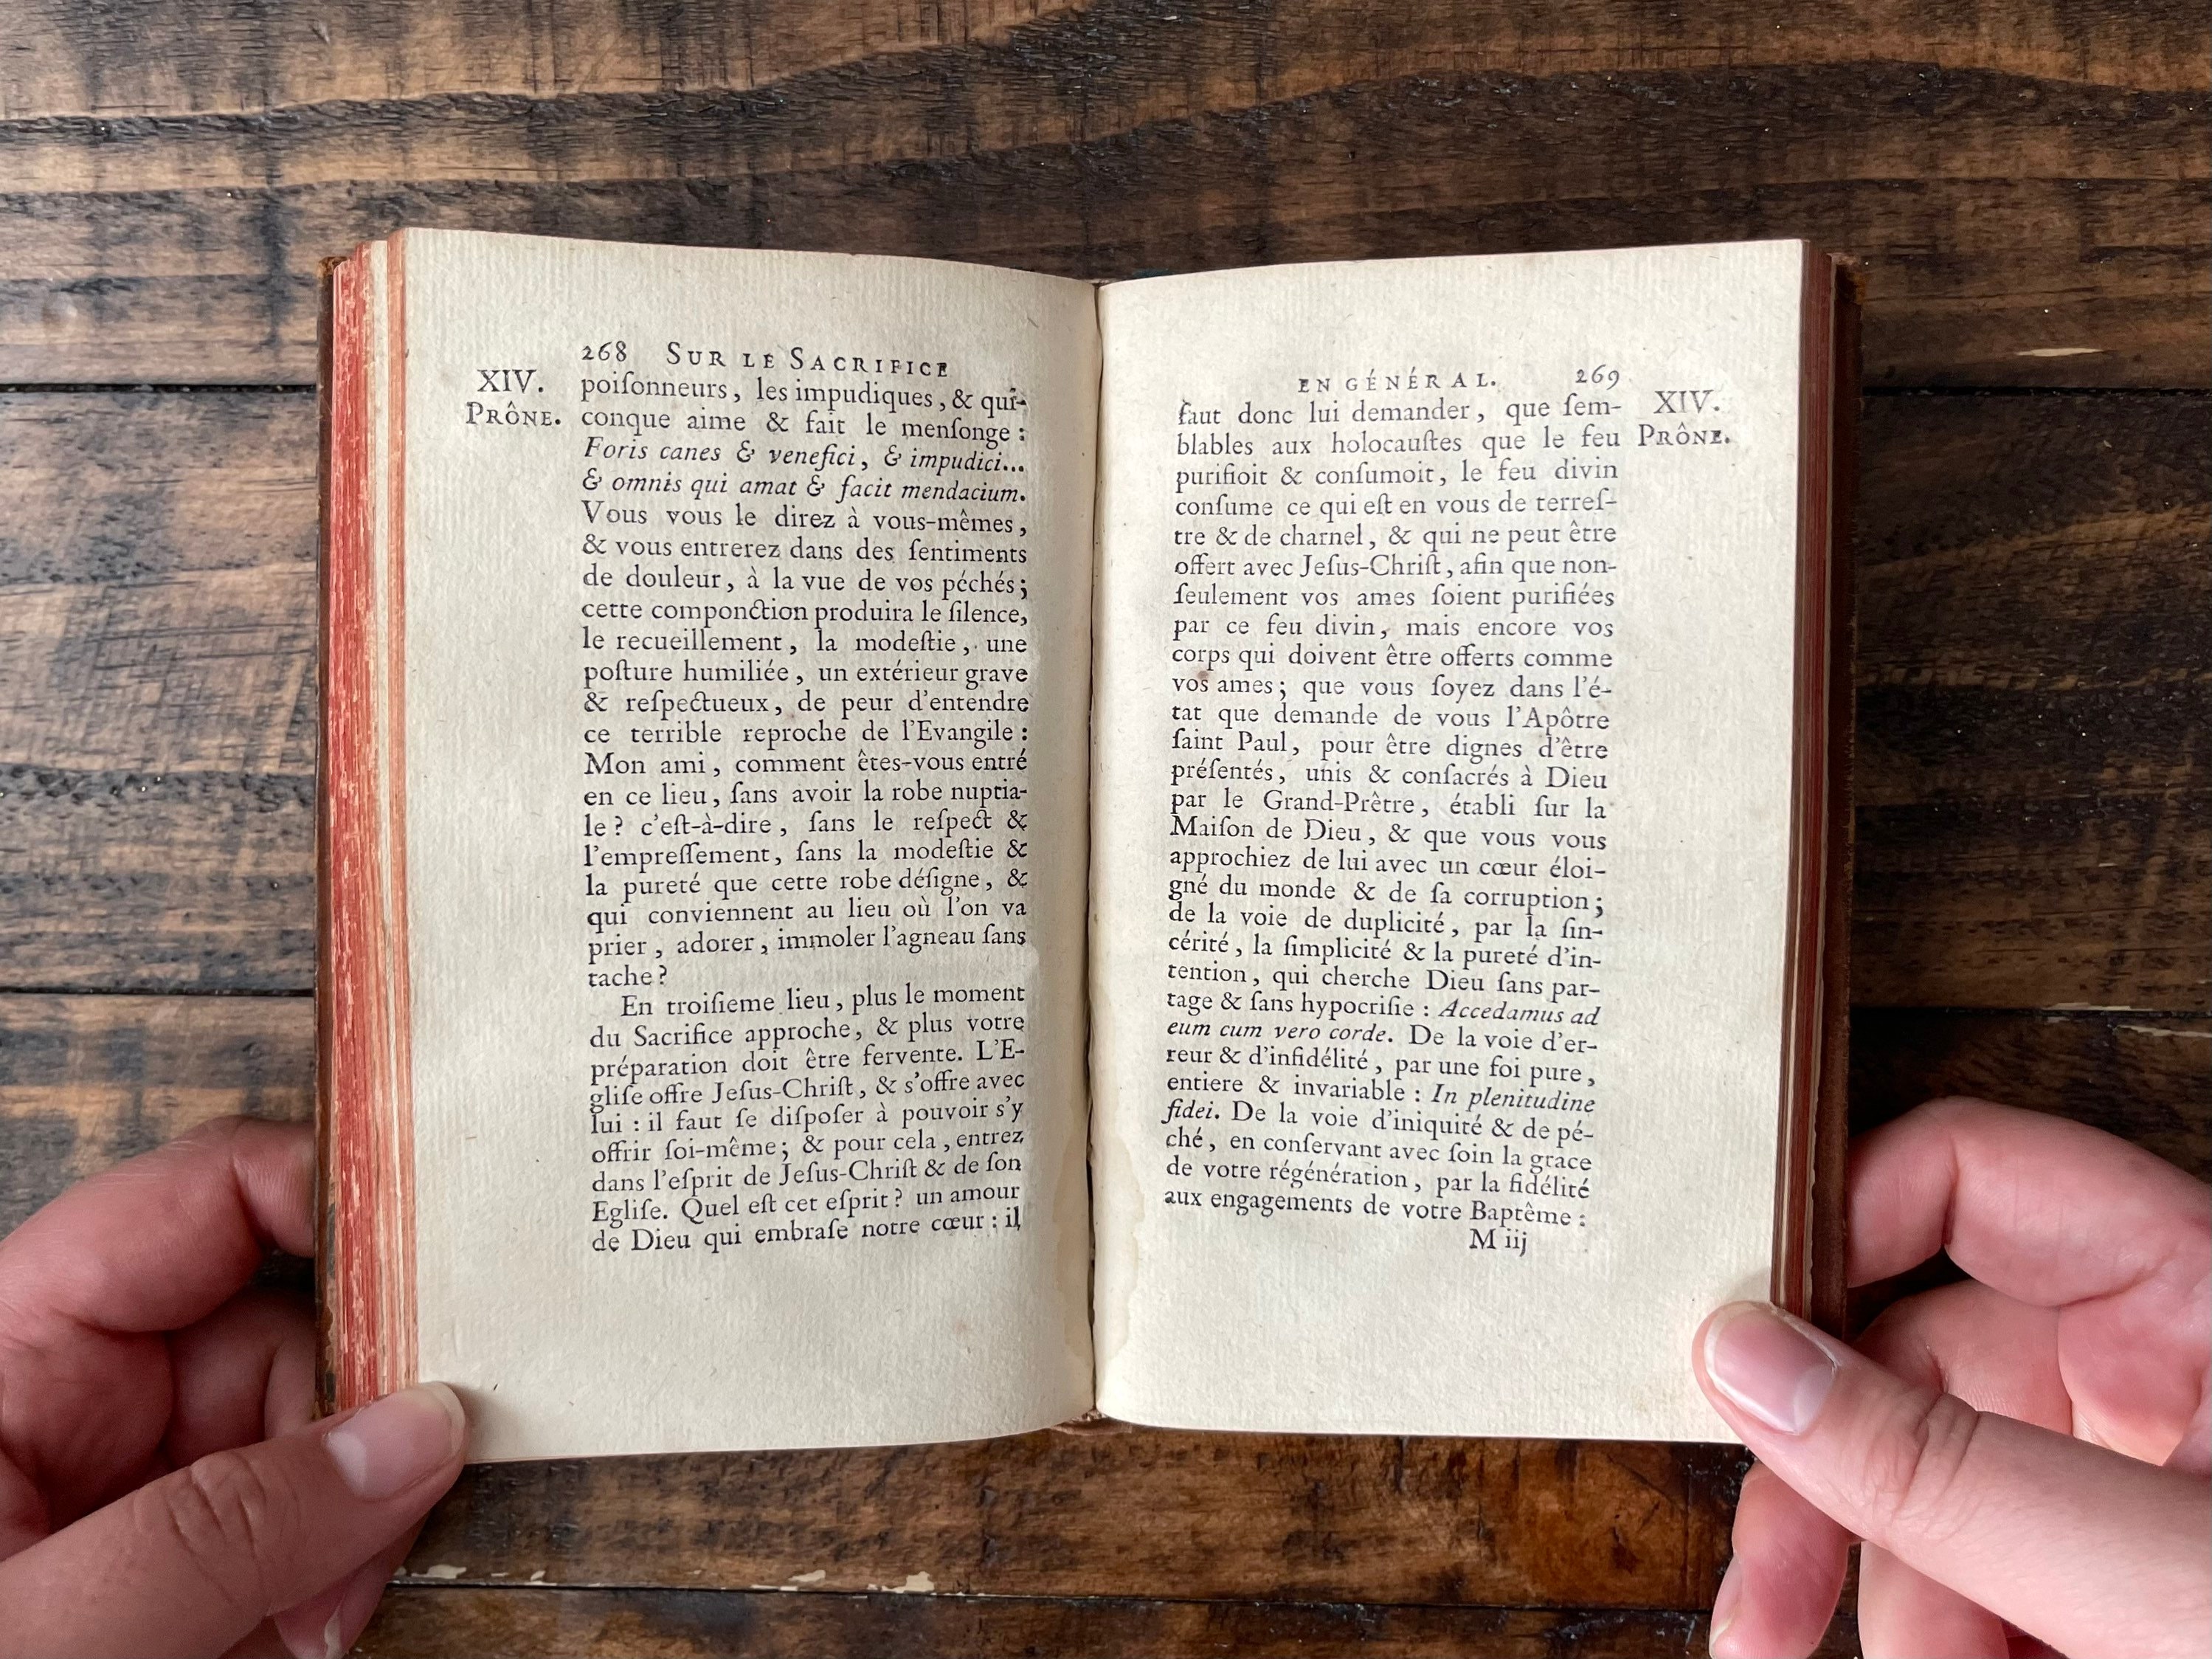 268 SUR LE SACRIFICE
XIV.
PRÔNE.
poiſonneurs, les impudiques, & qui-
conque aime & fait le menſonge :
Foris canes & venefici, & impudici...
& omnis qui amat & facit mendacium.
Vous vous le direz à vous-mêmes,
& vous entrerez dans des ſentiments
de douleur, à la vue de vos péchés;
cette componction produira le ſilence,
le recueillement, la modeſtie, une
poſture humiliée, un extérieur grave
& reſpectueux, de peur d'entendre
ce terrible reproche de l'Evangile :
Mon ami, comment êtes-vous entré
en ce lieu, ſans avoir la robe nuptia-
le? c'eſt-à-dire, ſans le reſpect &
l'empreſſement, ſans la modeſtie &
la pureté que cette robe déſigne, &
qui conviennent au lieu où l'on va
prier, adorer, immoler l'agneau ſans
tache?
En troiſieme lieu, plus le moment
du Sacrifice approche, & plus votre
préparation doit être fervente. L'E-
gliſe offre Jeſus-Chriſt, & s'offre avec
lui : il faut ſe diſpoſer à pouvoir s'y
offrir ſoi-même; & pour cela, entrez
dans l'eſprit de Jeſus-Chriſt & de ſon
Egliſe. Quel eſt cet eſprit? un amour
de Dieu qui embraſe notre cœur : il
EN GÉNÉRAL. 269
XIV.
PRÔNE.
faut donc lui demander, que ſem-
blables aux holocauſtes que le feu
purifioit & conſumoit, le feu divin
conſume ce qui eſt en vous de terreſ-
tre & de charnel, & qui ne peut être
offert avec Jeſus-Chriſt, afin que non-
ſeulement vos ames ſoient purifiées
par ce feu divin, mais encore vos
corps qui doivent être offerts comme
vos ames; que vous ſoyez dans l'é-
tat que demande de vous l'Apôtre
ſaint Paul, pour être dignes d'être
préſentés, unis & conſacrés à Dieu
par le Grand-Prêtre, établi ſur la
Maiſon de Dieu, & que vous vous
approchiez de lui avec un cœur éloi-
gné du monde & de ſa corruption;
de la voie de duplicité, par la ſin-
cérité, la ſimplicité & la pureté d'in-
tention, qui cherche Dieu ſans par-
tage & ſans hypocriſie : Accedamus ad
eum cum vero corde. De la voie d'er-
reur & d'infidélité, par une foi pure,
entiere & invariable : In plenitudine
fidei. De la voie d'iniquité & de pé-
ché, en conſervant avec ſoin la grace
de votre régénération, par la fidélité
aux engagements de votre Baptême :
M iij